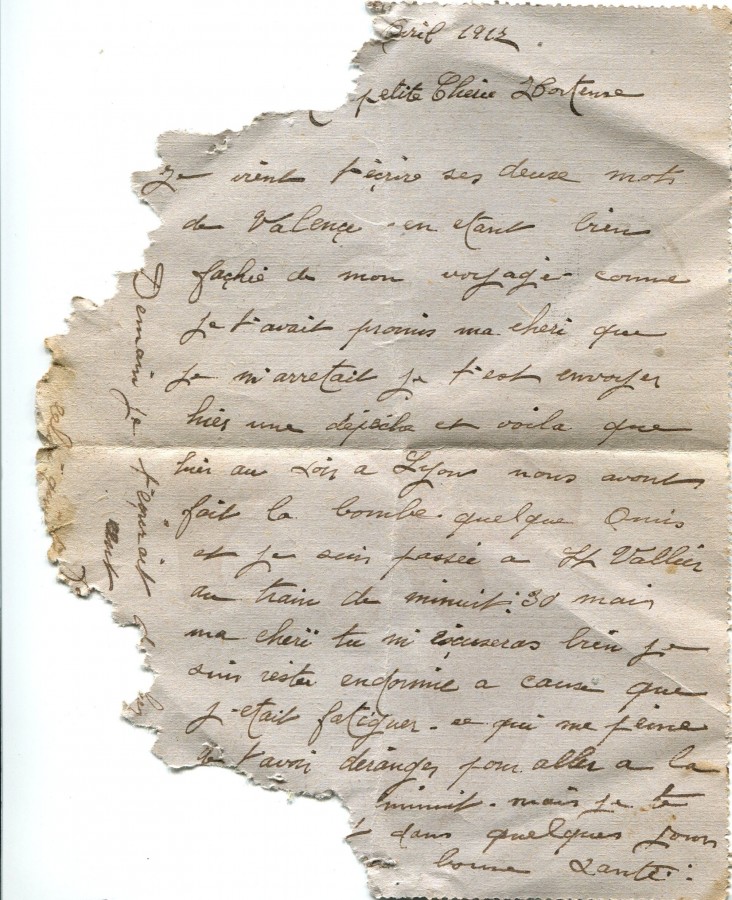 avril 1912
petite Cherie Hortense
Je vient t'eçrire ses deuse mots
de Valençe en etant bien
façhié de mon voyage conne
je t'avait promis ma cheri que
je m'arretait je t'est envoyer
hier une dépécha et voila que
hier au soir a Lyon nous avont
fait la bombe quelque Amis
et je suis passée a St Vallier
au train de minuit 30 mais
ma cheri tu m'éscuseras bien je
suis rester endormie a cause que
j'etait fatiguer. ce qui me peine
de t'avoir déranger pour aller a la
minuit. mais je te
dans quelques jours
bonne Santé:
Demain je t'eçrirait